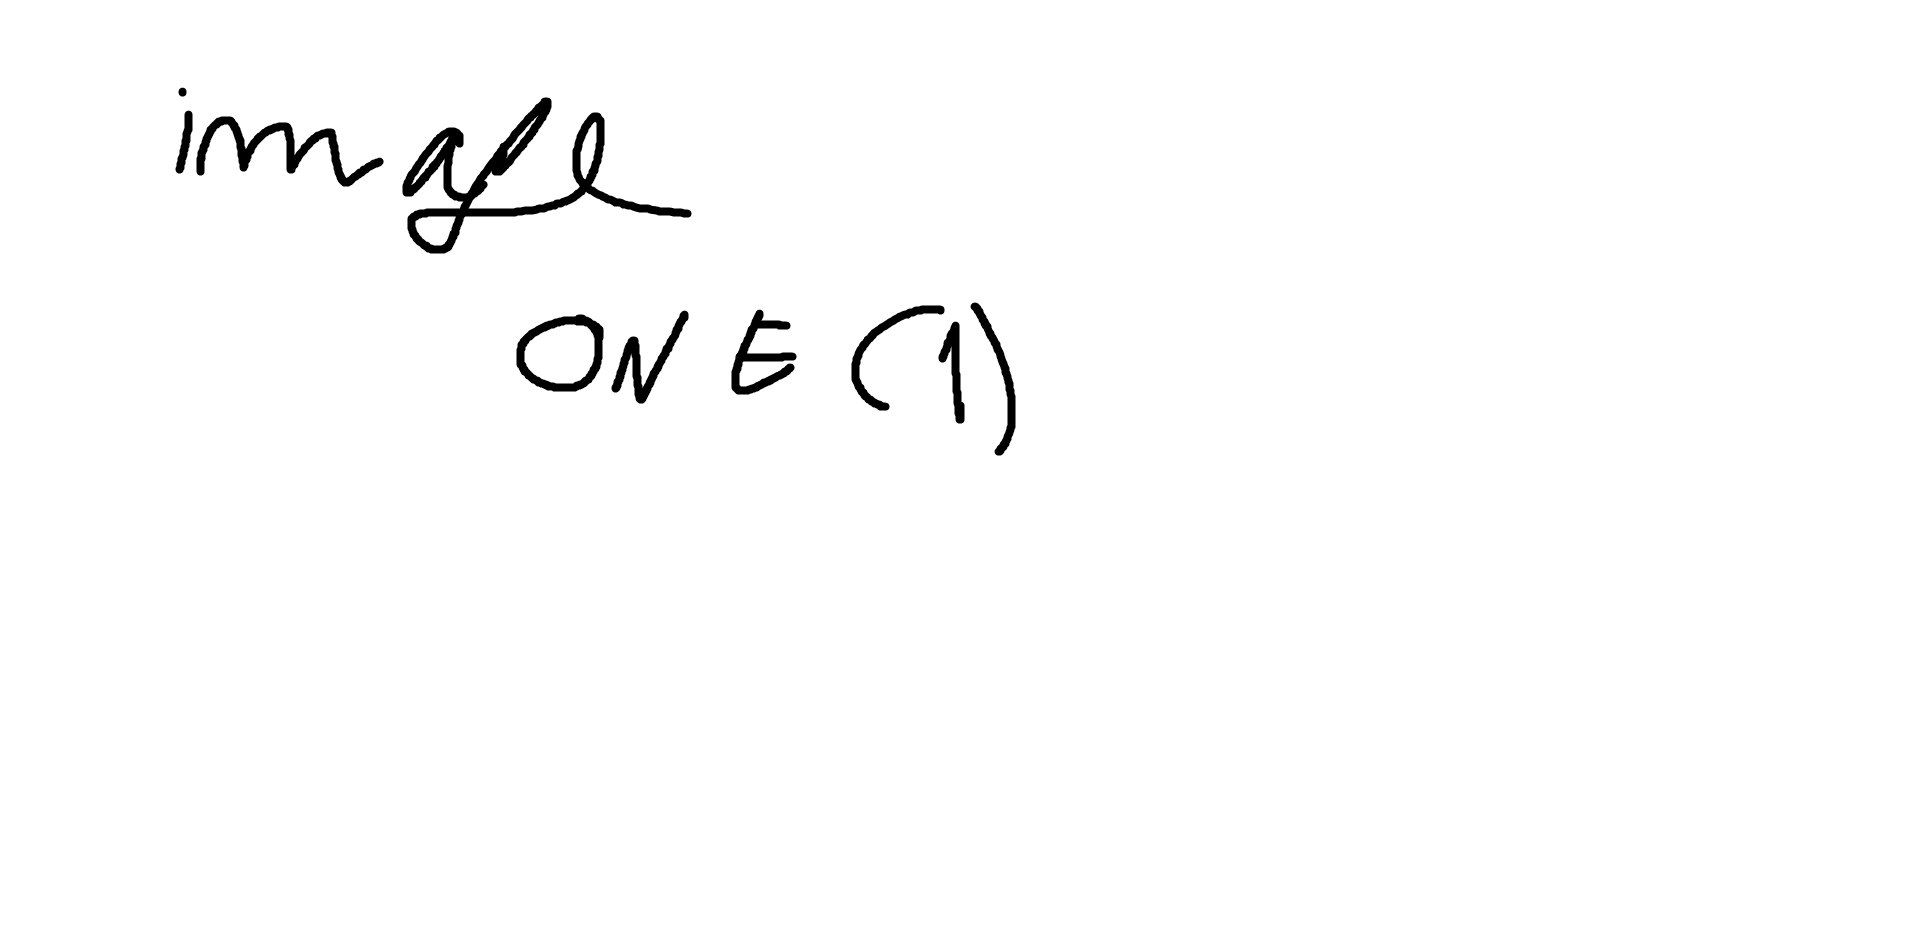 image
ONE (1)